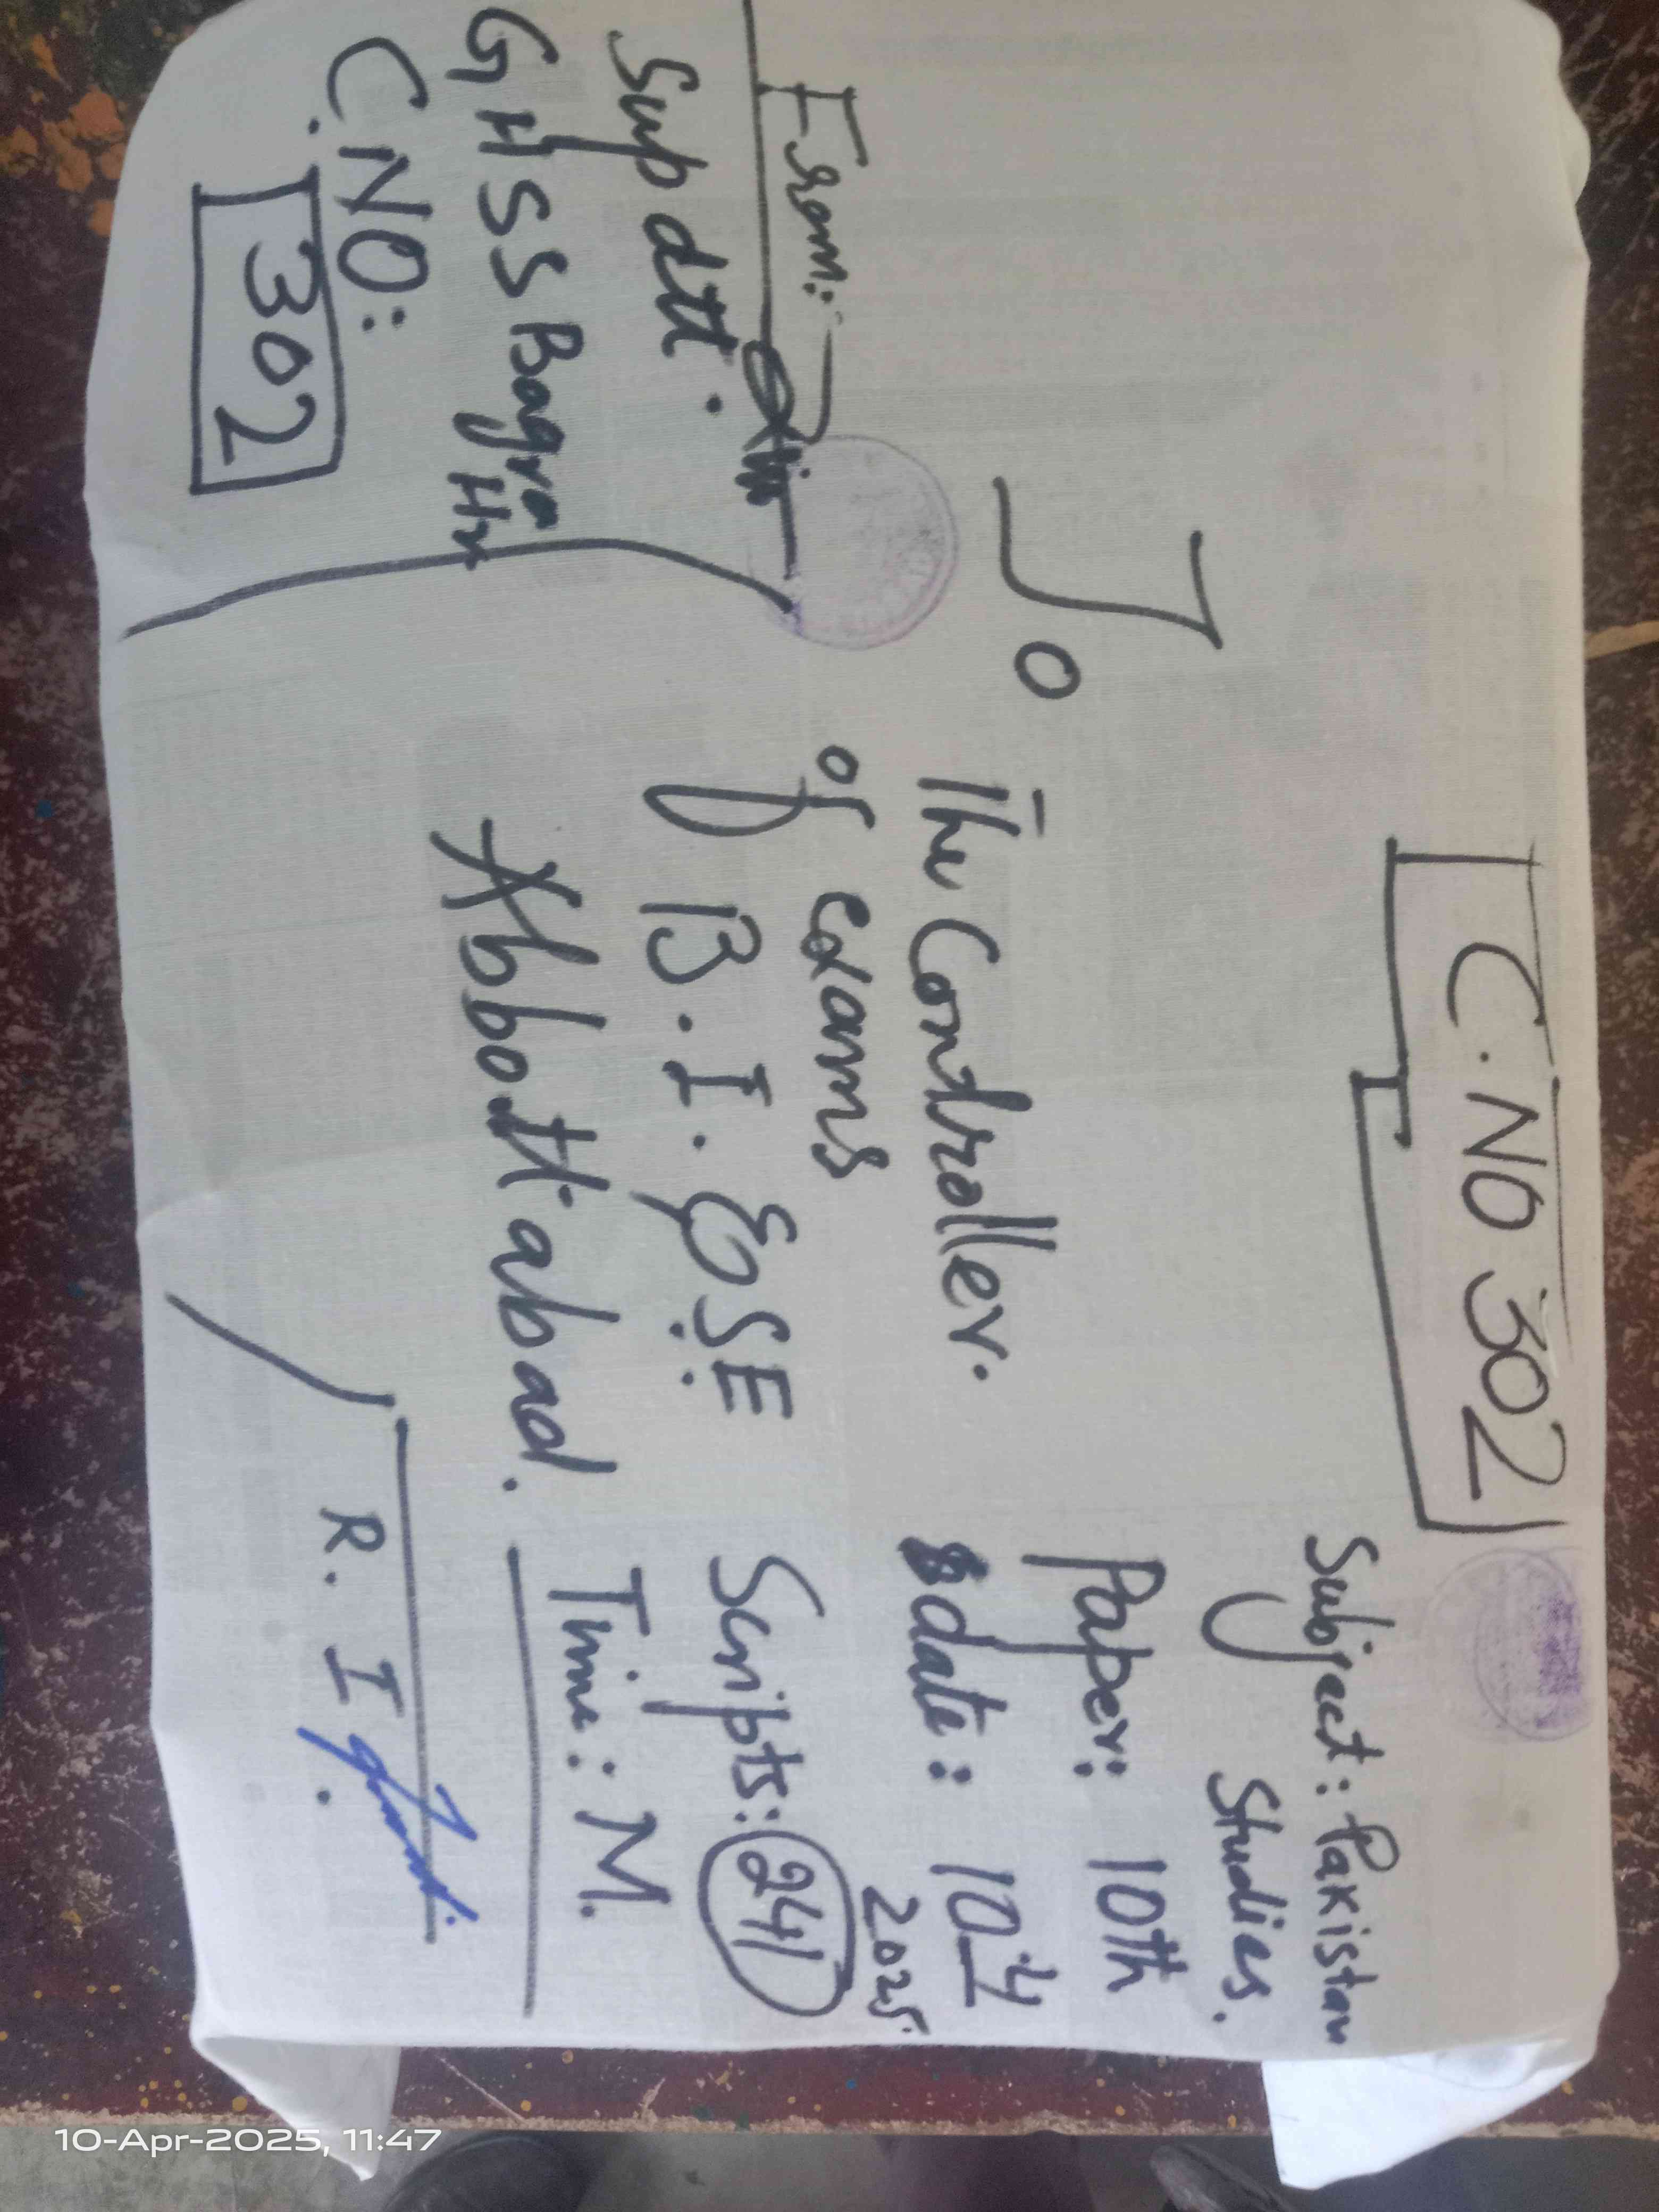 C. NO 302
Subject: Pakistan
Studies.
Paper: 10th
date: 10-4
2025
Scripts: 241
Time: M.
To
The Controller.
of exams
B. I. & S. E.
Abbottabad.
From:
Supdtt.
GHSS Bagra
C.NO:
302
R. I
10-Apr-2025, 11:47